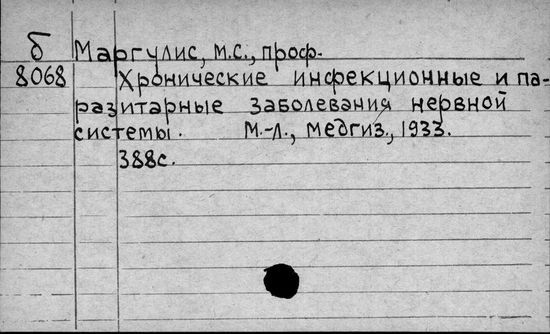 б Маргулис, М.С., проф.
8068 Хронические инфекционные и па-
разитарные заболевания нервной
системы. М.-Л., Медгиз, 1933.
388с.